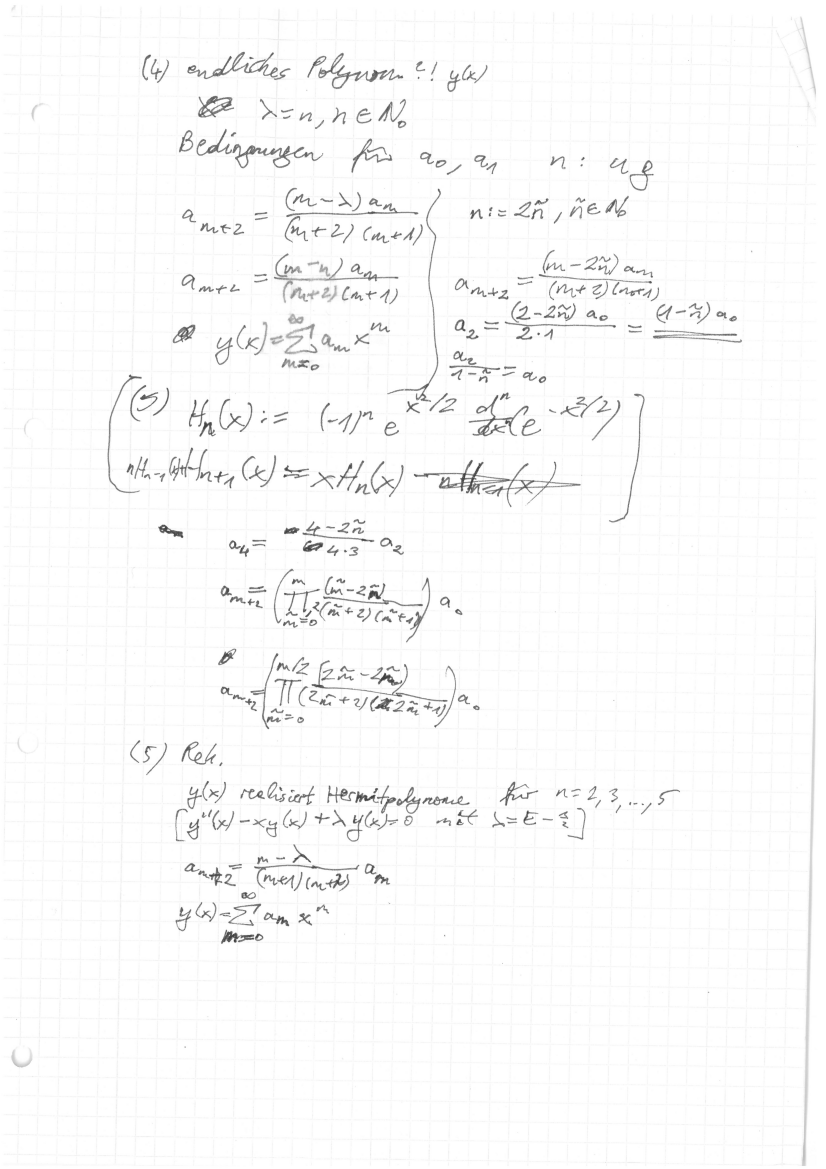 (4) endliches Polynom ?! y(x)
λ = n, n ∈ N₀
Bedingungen für a₀, a₁ n : u g
a_{m+2} = (m-λ) a_m / (m+2)(m+1)
a_{m+2} = (m-n) a_m / (m+2)(m+1)
y(x) = Σ_{m=0}^{∞} a_m x^m
n := 2ñ, ñ ∈ N₀
a_{m+2} = (m-2ñ) a_m / (m+2)(m+1)
a₂ = (2-2ñ) a₀ / 2·1 = (1-ñ) a₀
a₂ / 1-ñ = a₀
(5) H_n(x) := (-1)^n e^{x²/2} d^n/dx^n (e^{-x²/2})
nH_{n-1}(x)+H_{n+1}(x) = xH_n(x) - nH_{n-1}(x)
a₄ = 4-2ñ / 4·3 a₂
a_{m+2} = (∏_{m̃=0}^{m} (m̃-2ñ) / (m̃+2)(m̃+1)) a₀
a_{m+2} = (∏_{m̃=0}^{m/2} (2m̃-2ñ) / (2m̃+2)(2m̃+1)) a₀
(5) Rek.
y(x) realisiert Hermitpolynome für n=2,3,...,5
[y''(x) - xy(x) + λ y(x) = 0 mit λ = E - ½]
a_{m+2} = m-λ / (m+1)(m+2) a_m
y(x) = Σ_{m=0}^{∞} a_m x^m